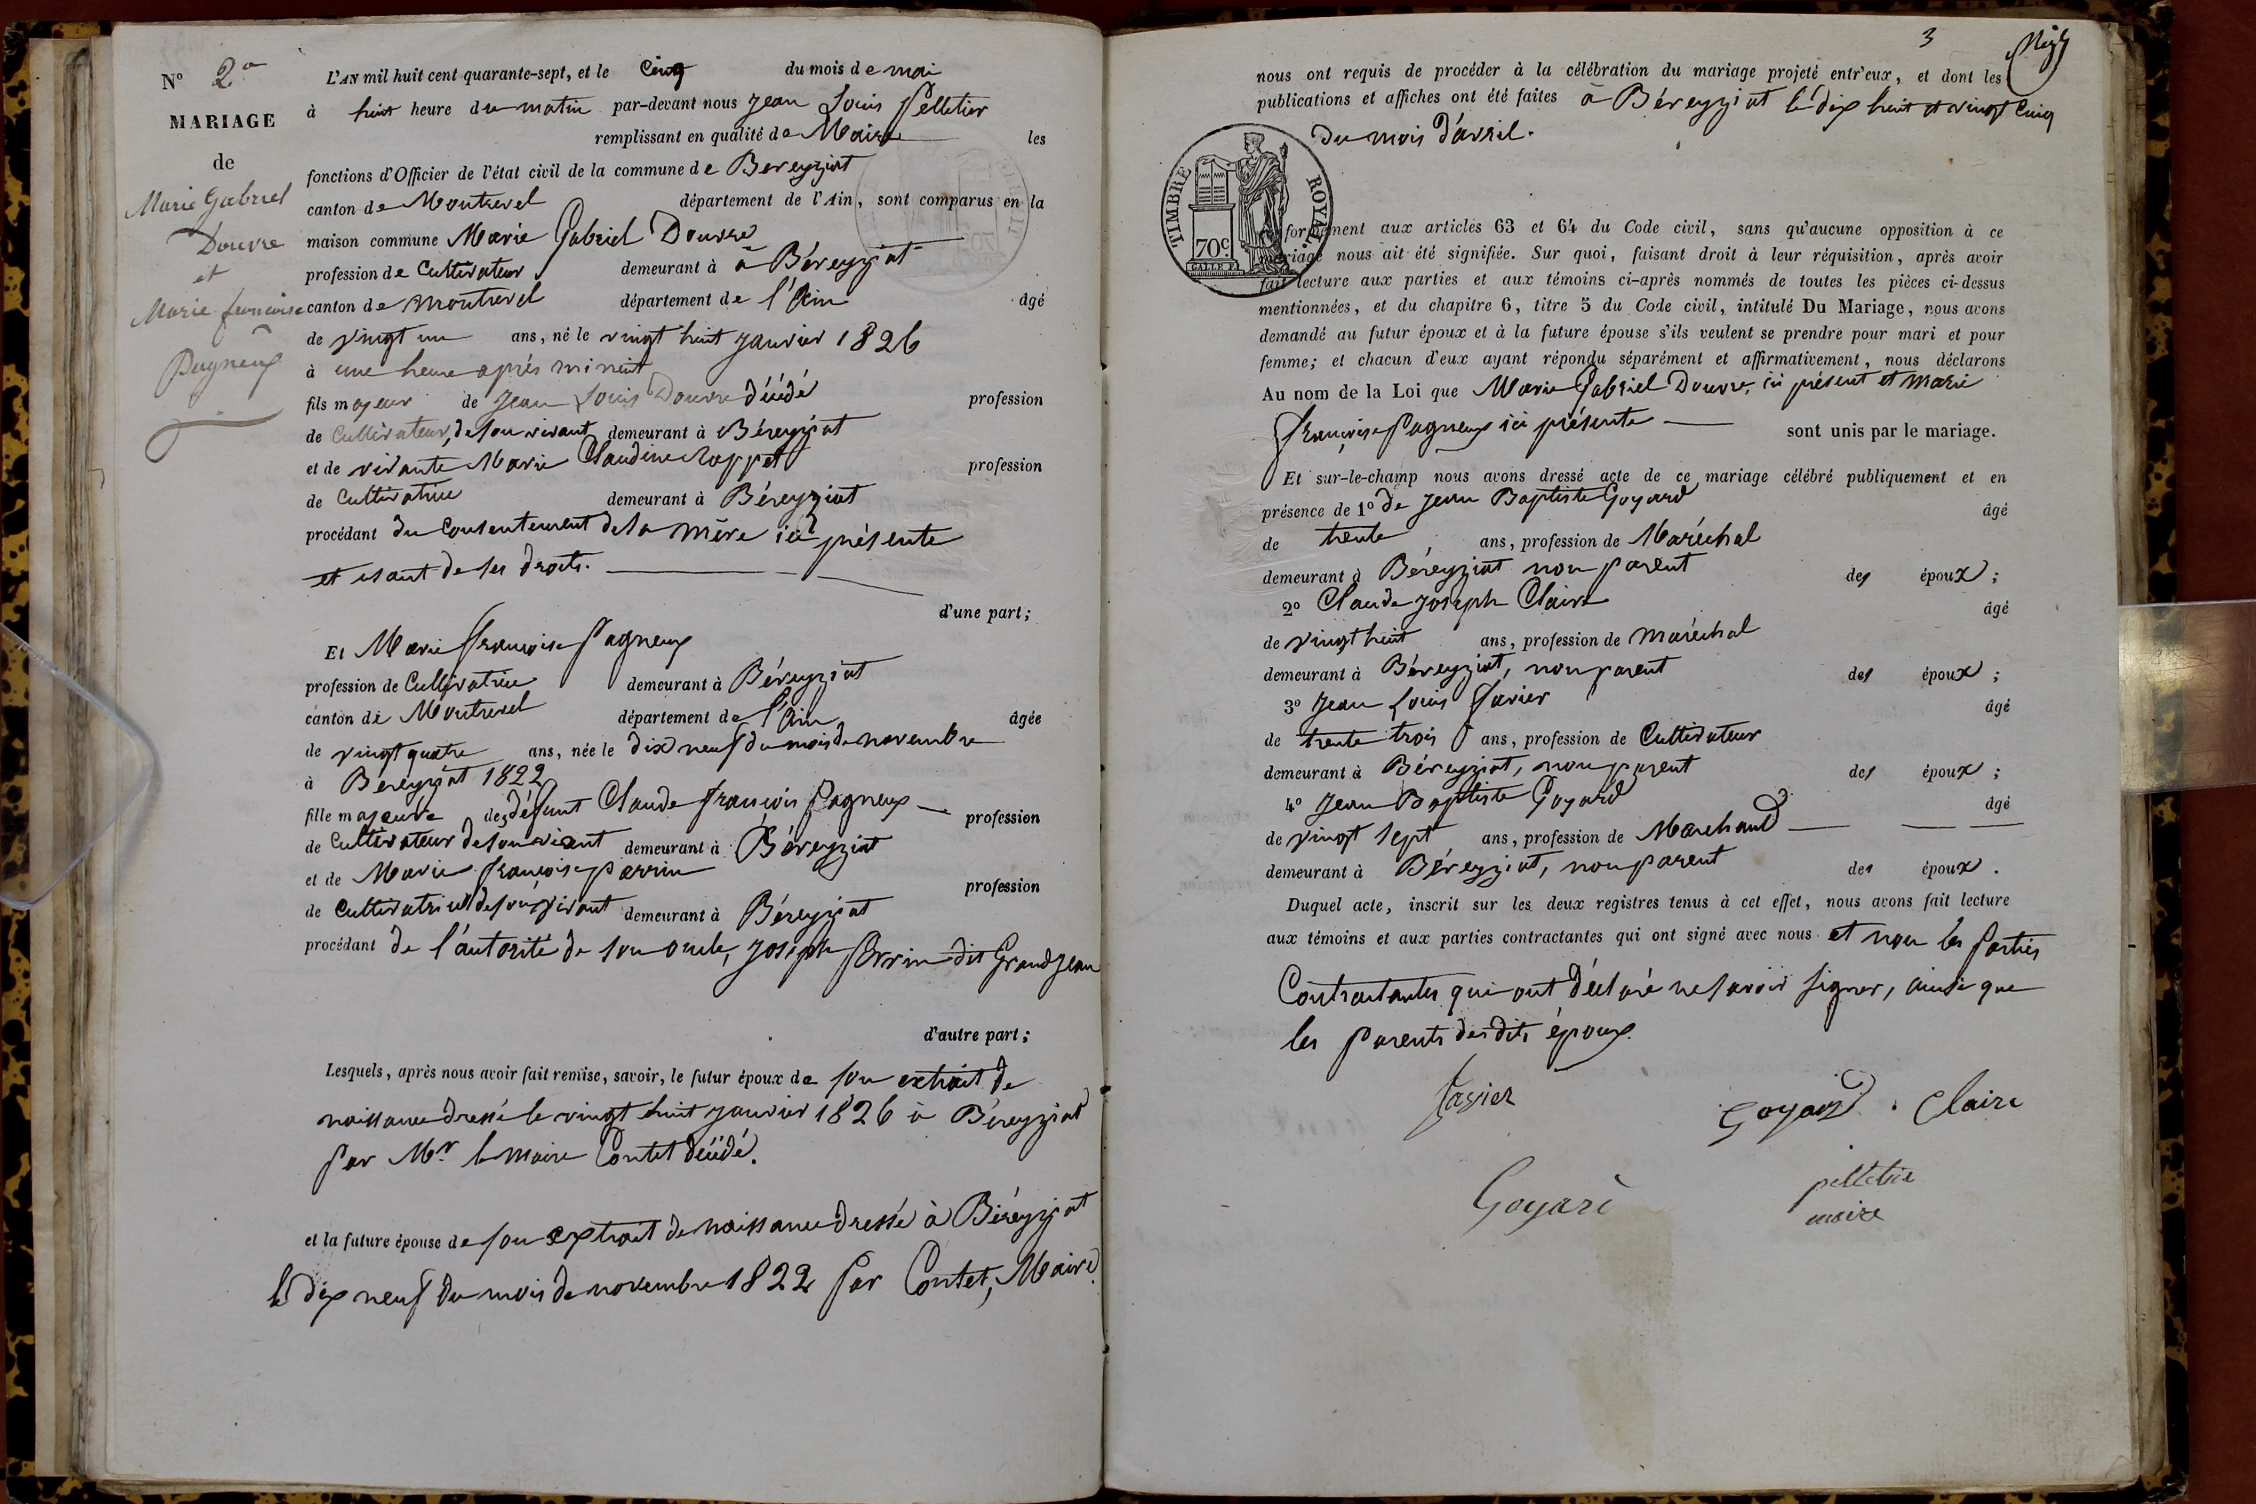 N° 2e
MARIAGE
de
Marie Gabriel
Douvre
et
Marie françoise
Pagneux
L'AN mil huit cent quarante-sept, et le Cinq du mois de mai
à huit heure du matin par-devant nous Jean Louis Pelletier
remplissant en qualité de Maire les
fonctions d'Officier de l'état civil de la commune de Bereyziat
canton de Montrevel département de l'Ain, sont comparus en la
maison commune Marie Gabriel Douvre
profession de Cultivateur demeurant à à Béreyziat
canton de Montrevel département de l'Ain âgé
de vingt un ans, né le vingt huit janvier 1826
à une heure après minuit
fils majeur de Jean Louis Douvre décédé profession
de Cultivateur, de son vivant demeurant à Béreyziat
et de vivante Marie Claudine profession
de Cultivatrice demeurant à Béreyziat
procédant du Consentement de la mère ici présente
et usant de ses droits.
d'une part;
Et Marie françoise Pagneux
profession de Cultivatrice demeurant à Béreyziat
canton de Montrevel département de l'Ain âgée
de vingt quatre ans, née le dix neuf du mois de novembre
à Béreyziat 1822
fille majeure des défunt Claude françois Pagneux profession
de Cultivateur de son vivant demeurant à Béreyziat
et de Marie françoise Perrin profession
de Cultivatrice de son vivant demeurant à Béreyziat
procédant de l'autorité de son oncle, Joseph Perrin dit Grandjean
d'autre part;
Lesquels, après nous avoir fait remise, savoir, le futur époux de son extrait de
naissance dressé le vingt huit janvier 1826 à Béreyziat
par Mr le maire Contet décédé.
et la future épouse de son extrait de naissance dressé à Béreyziat
le dix neuf du mois de novembre 1822 par Contet, Maire.
3
nous ont requis de procéder à la célébration du mariage projeté entr'eux, et dont les
publications et affiches ont été faites à Béreyziat le dix huit et vingt Cinq
du mois d'avril.
TIMBRE ROYAL.
70c.
formément aux articles 63 et 64 du Code civil, sans qu'aucune opposition à ce
mariage nous ait été signifiée. Sur quoi, faisant droit à leur réquisition, après avoir
fait lecture aux parties et aux témoins ci-après nommés de toutes les pièces ci-dessus
mentionnées, et du chapitre 6, titre 5 du Code civil, intitulé Du Mariage, nous avons
demandé au futur époux et à la future épouse s'ils veulent se prendre pour mari et pour
femme; et chacun d'eux ayant répondu séparément et affirmativement, nous déclarons
Au nom de la Loi que Marie Gabriel Douvre, ici présent et Marie
françoise Pagneux ici présente sont unis par le mariage.
Et sur-le-champ nous avons dressé acte de ce mariage célébré publiquement et en
présence de 1° de Jean Baptiste Goyard âgé
de trente ans, profession de Maréchal
demeurant à Béreyziat non parent des époux;
2° Claude Joseph Claire âgé
de vingt huit ans, profession de maréchal
demeurant à Béreyziat, non parent des époux;
3° Jean Louis Favier âgé
de trente trois ans, profession de Cultivateur
demeurant à Béreyziat, non parent des époux;
4° Jean Baptiste Goyard âgé
de vingt sept ans, profession de Marchand
demeurant à Béreyziat, non parent des époux.
Duquel acte, inscrit sur les deux registres tenus à cet effet, nous avons fait lecture
aux témoins et aux parties contractantes qui ont signé avec nous et non les Parties
Contractantes qui ont déclaré ne savoir signer, ainsi que
les parents desdits époux.
favier
Goyard. Claire
Goyard
pelletier
maire